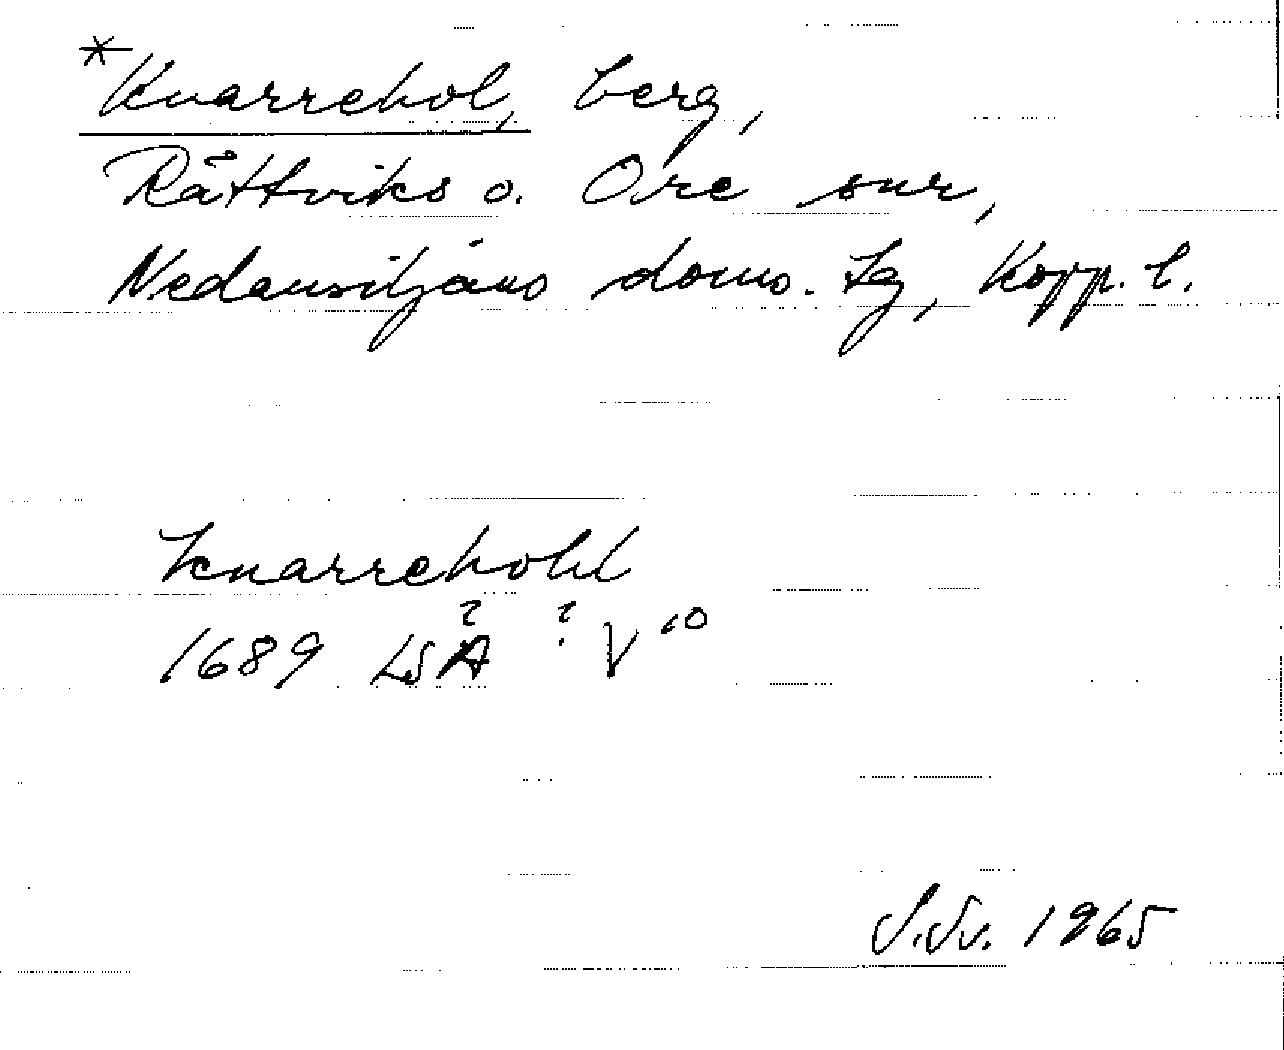 *Knarrehol, berg,
Rättviks o. Ore snr,
Nedansiljans doms. Lg, Kopp. l.
Knarrehohl
1689 LSÄ ? V 10
S.Sv. 1965